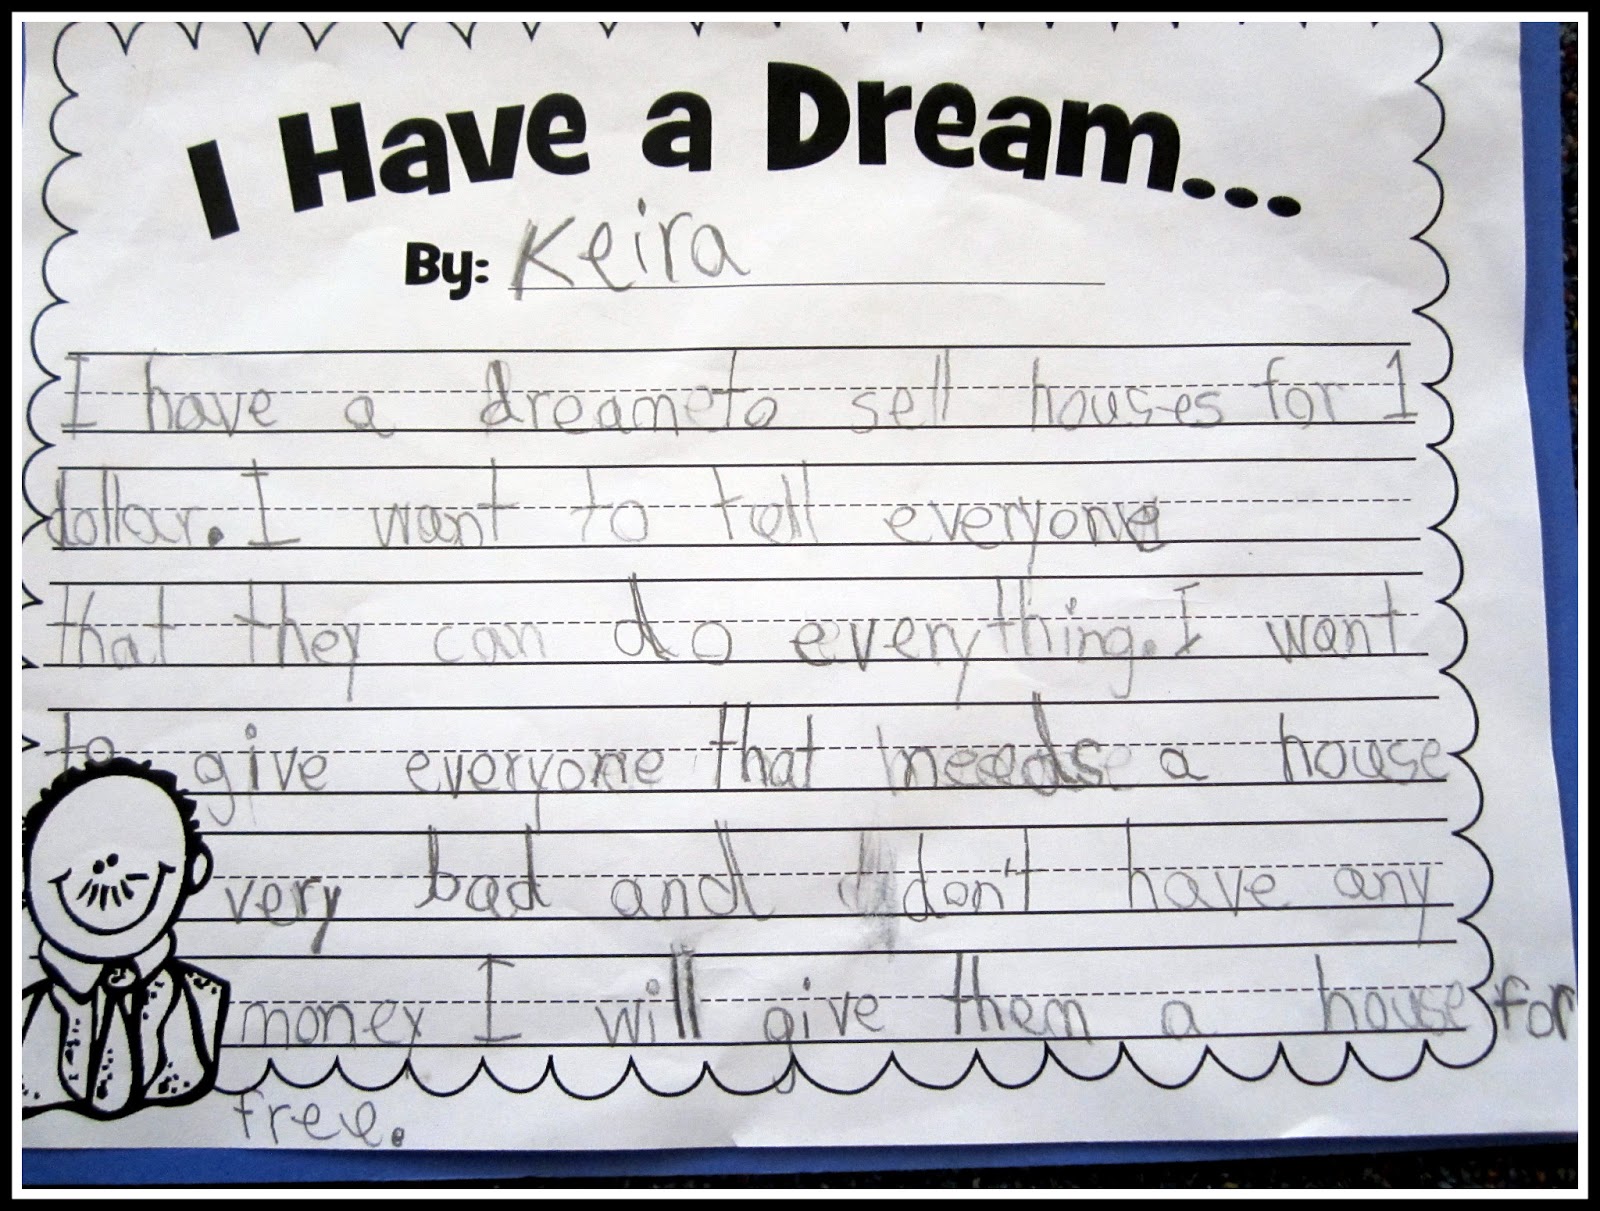 I Have a Dream...
By: Keira
I have a dream to sell houses for 1
dollar. I want to tell everyone
that they can do everything. I want
to give everyone that needs a house
very bad and don't have any
money I will give them a house for
free.